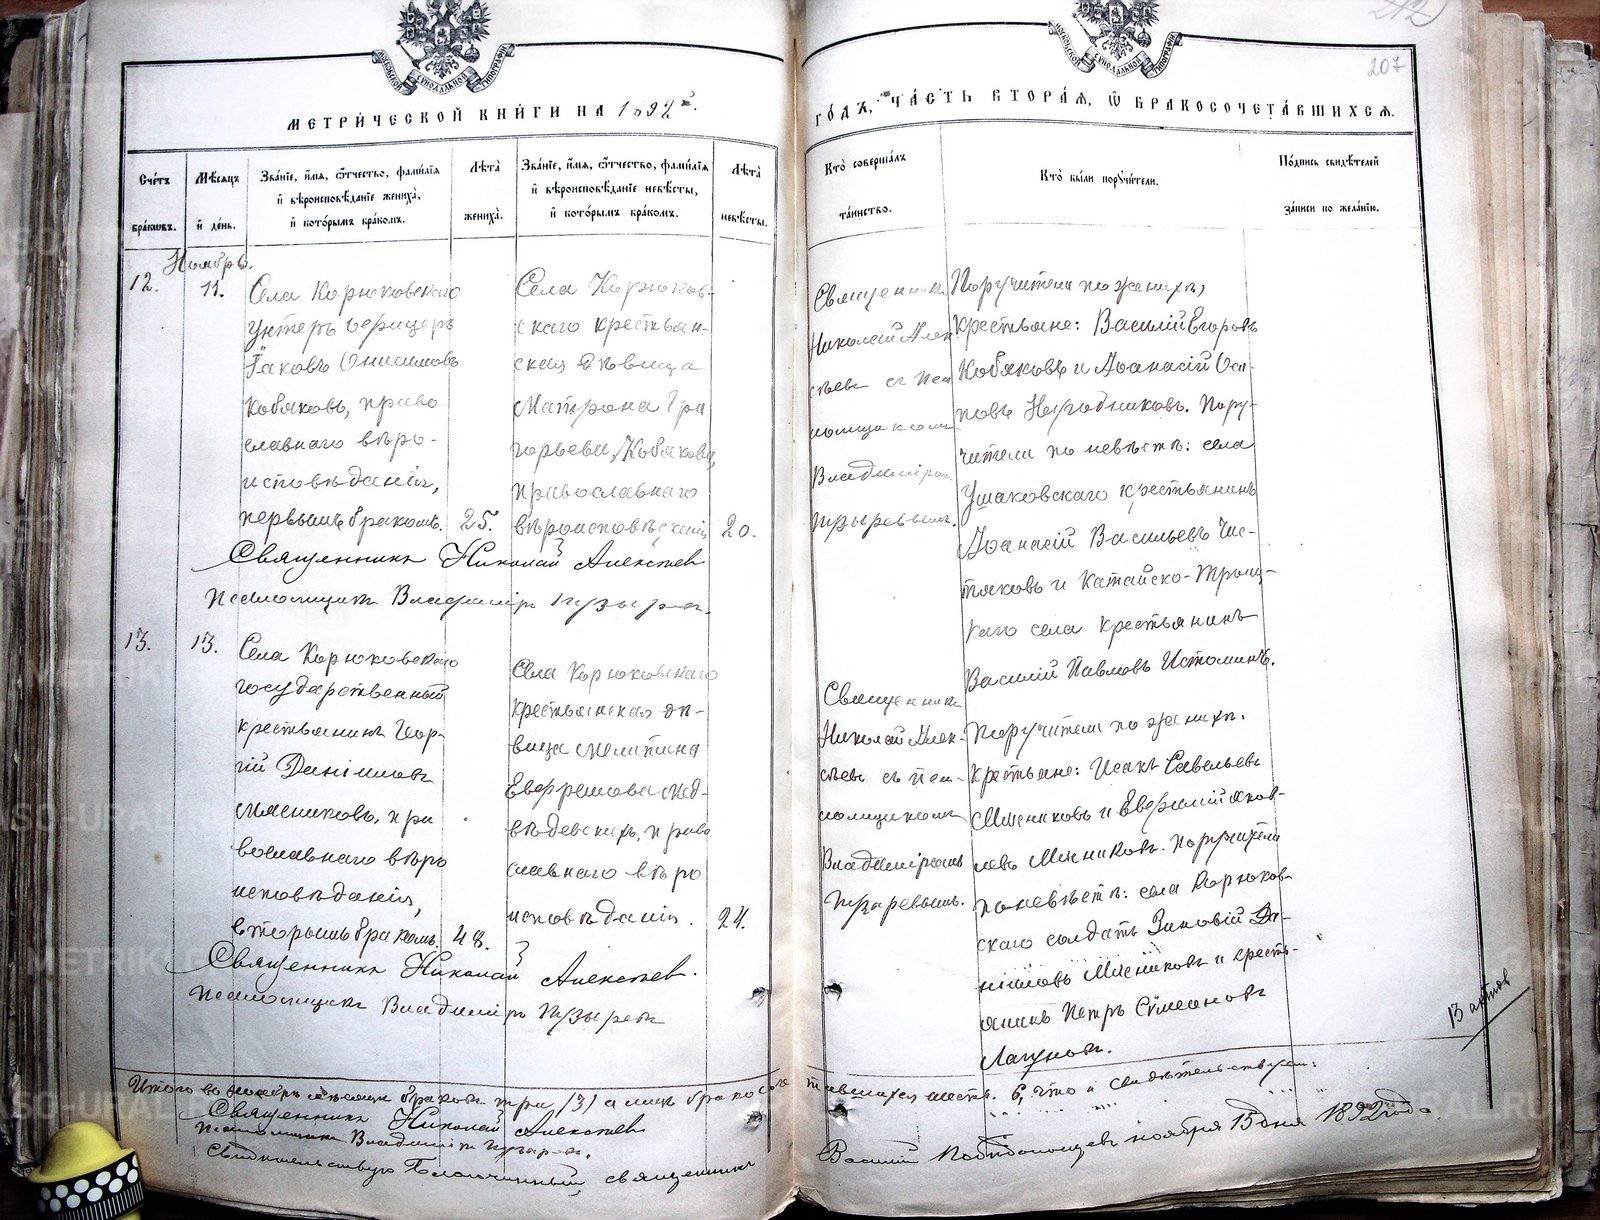 МЕТРИЧЕСКОЙ КНИГИ НА 1892
ГОДЪ, ЧАСТЬ ВТОРАЯ, Ѿ БРАКОСОЧЕТАВШИХСЯ.
207
МОСКОВСКОЙ СѴНОДАЛЬНОЙ ТИПОГРАФІИ
МОСКОВСКОЙ СѴНОДАЛЬНОЙ ТИПОГРАФІИ
Счетъ браковъ.
Мѣсяцъ и день.
Званіе, имя, ѿчество, фамилія и вѣроисповѣданіе жениха, и которымъ бракомъ.
Лѣта жениха.
Званіе, имя, ѿчество, фамилія и вѣроисповѣданіе невѣсты, и которымъ бракомъ.
Лѣта невѣсты.
Кто совершалъ таинство.
Кто были поручители.
Подпись свидѣтелей записи по желанію.
Ноябрь.
12.
11.
Села Корюковскаго
унтеръ офицеръ
Іаковъ Онисимовъ
Кобяковъ, право
славнаго вѣро-
исповѣданія,
первымъ бракомъ.
25.
Села Корюков-
скаго крестьян-
ская дѣвица
Матрона Гри
горьева Кобякова,
православнаго
вѣроисповѣданія
20.
Священникъ
Николай Алек-
сѣевъ съ псал
омщикомъ
Владиміромъ
Пузыревымъ.
Поручители по женихѣ,
крестьяне: Василій Егоровъ
Кобяковъ и Аѳанасій Оси-
повъ Негодниковъ. Пору-
чители по невѣстѣ: села
Ушаковскаго крестьянинъ
Аѳанасій Васильевъ Чис-
тяковъ и Катайско-Троиц-
каго села крестьянинъ
Василій Павловъ Истоминъ.
Священникъ Николай Алексѣев
Псаломщикъ Владиміръ Пузырев.
13.
13.
Села Корюковскаго
государственный
крестьянинъ Геор-
гій Даніиловъ
Мясниковъ, пра
вославнаго вѣро
исповѣданія,
вторымъ бракомъ.
48.
Села Корюковскаго
крестьянская дѣ-
вица Мелитина
Евфремова Мед-
вѣдевскихъ, право
славнаго вѣро
исповѣданія.
24.
Священникъ
Николай Алек-
сѣевъ съ псал-
омщикомъ
Владиміромъ
Пузыревымъ.
Поручители по женихѣ.
крестьяне: Исакъ Савельевъ
Мясниковъ и Евфимій Яков-
левъ Мясниковъ. Поручители
по невѣстѣ: села Корюков-
скаго солдатъ Зиновій Да-
ніиловъ Мясниковъ и кресть-
янинъ Петръ Сѵмеоновъ
Лагуновъ.
Священникъ Николай Алексѣев.
Псаломщикъ Владиміръ Пузырев
13 актов
Итого въ ноябрѣ мѣсяцѣ браковъ три (3) а лицъ бракосоче тавшихся шесть. 6, что и свидѣтельствуемъ:
Священникъ Николай Алексѣев
Псаломщикъ Владиміръ Пузырев.
Свидѣтельствую Благочинный, священникъ Василій Победоносцевъ ноября 15 дня 1892 года.